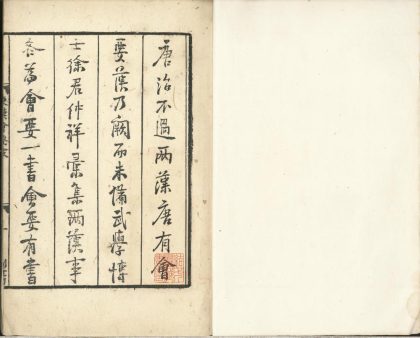 唐治不過兩漢唐有會
要漢乃闕而未備武學博
士徐君仲祥彙集兩漢事
各為會要一書會要有書